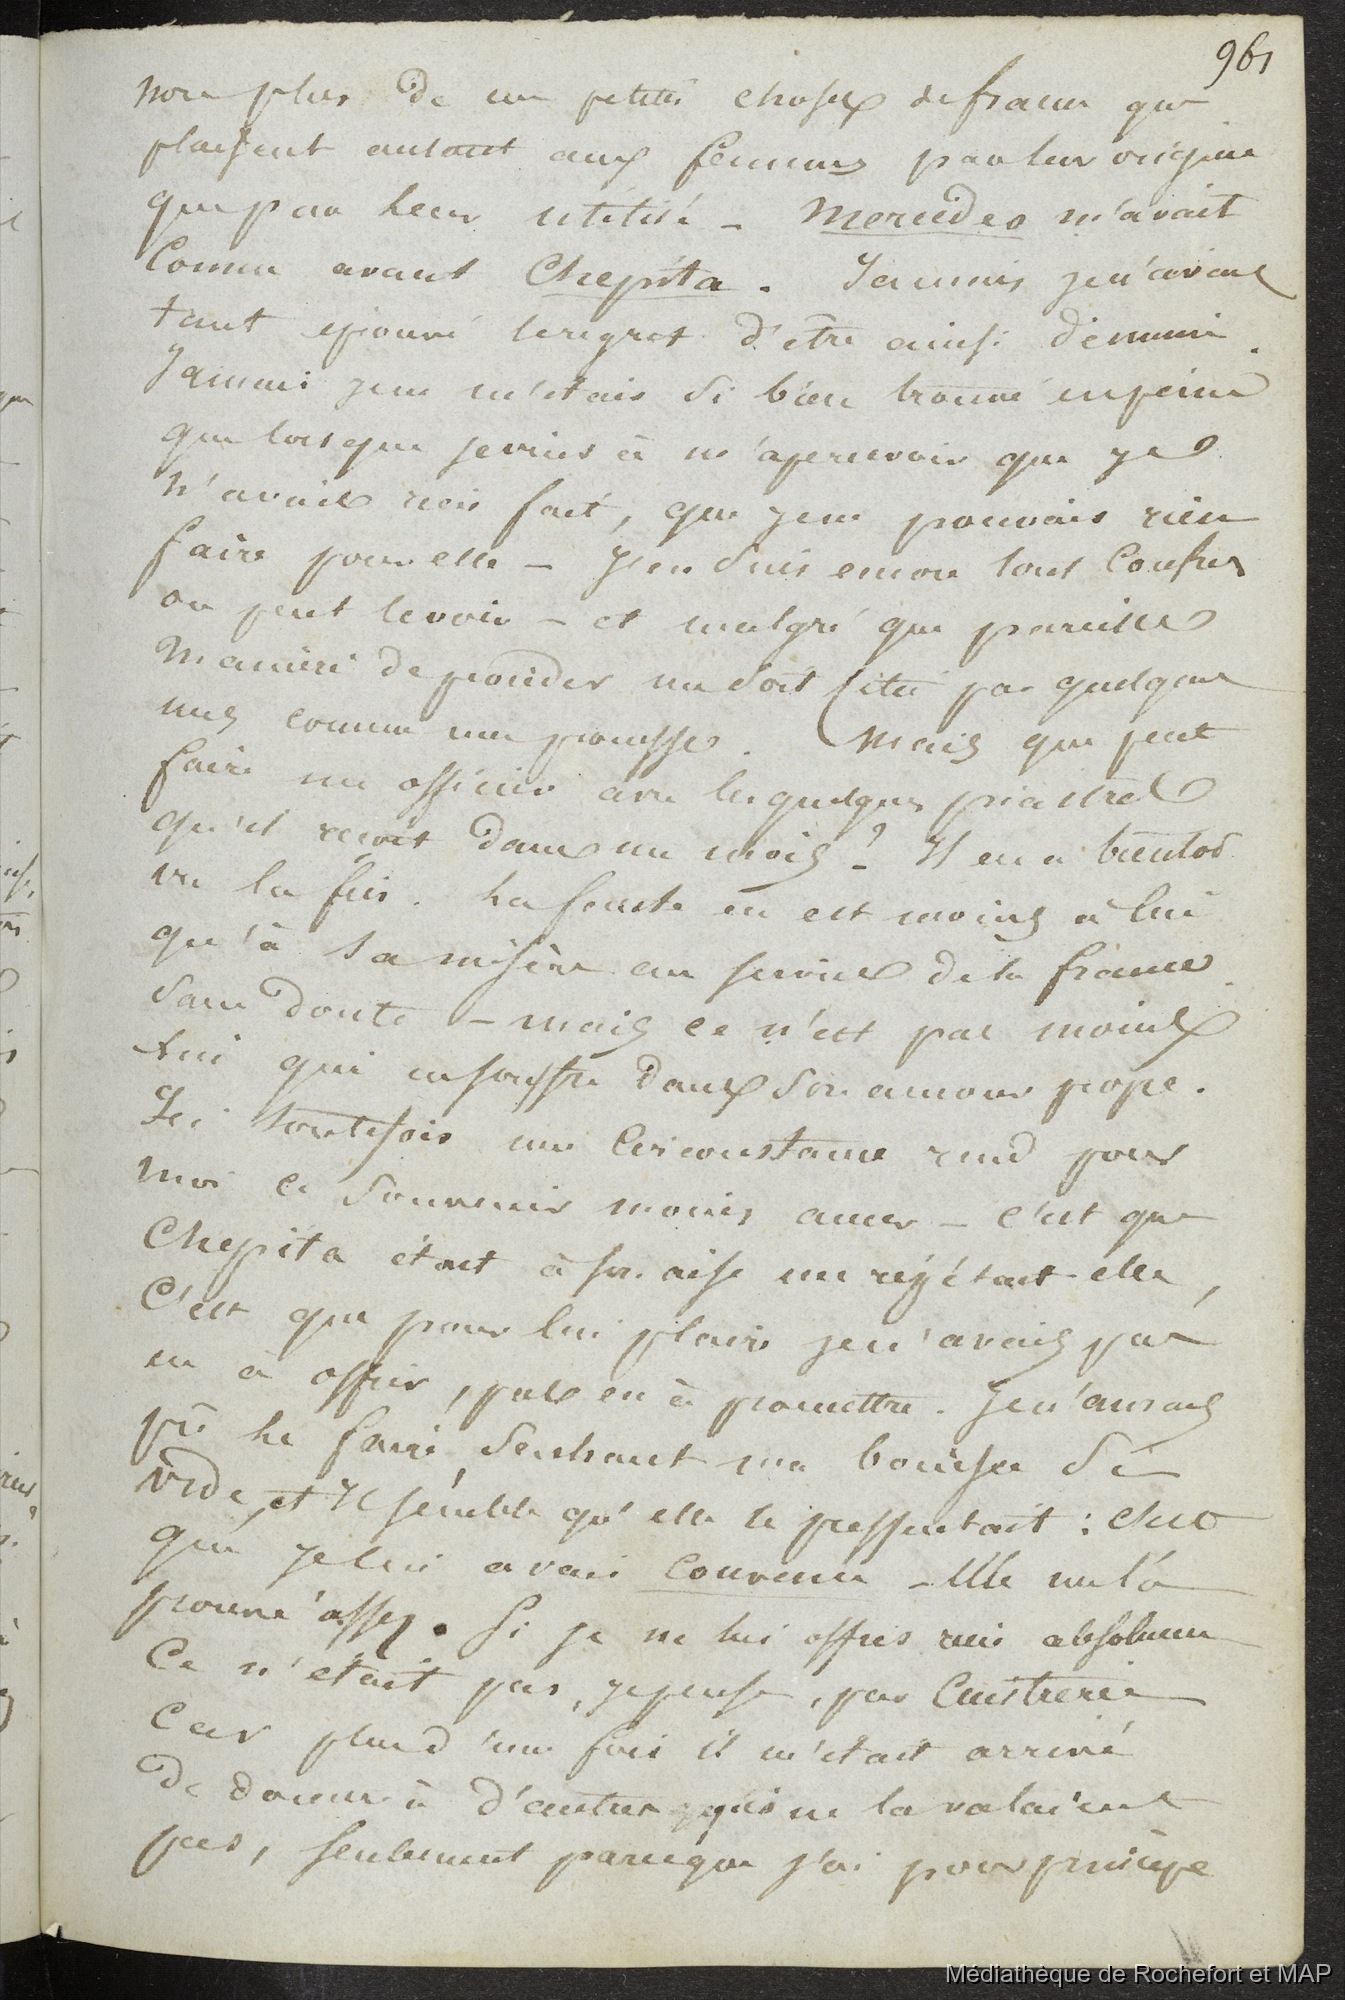 961
non plus de ces petites choses de france qui
plaisent autant aux femmes par leur origine
que par leur utilité - Mercédes m'avait
connu avant Chepita. Jamais je n'avais
tant éprouvé le regret d'être ainsi démuni.
Jamais je ne m'étais si bien trouvé en peine
que lorsque je vins à m'apercevoir que je
n'avais rien fait, que je ne pouvais rien
faire pour elle - J'en suis encore tout confus
on peut le voir - et malgré que pareille
manière de procéder me soit citée par quelques
uns comme une prouesse. Mais que peut
faire un officier avec les quelques piastres
qu'il reçoit dans un mois? - Il en a bientôt
vu la fin. La faute en est moins à lui
qu'à sa misère au service de la france
sans doute - mais ce n'est pas moins
lui qui en souffre dans son amour propre.
Ici toutefois une circonstance rend pour
moi ce souvenir moins amer - c'est que
Chepita était à son aise
C'est que pour lui plaire je n'avais pas
eu à offrir, pas eu à promettre. Je n'aurais
pû le faire, sachant ma bourse si
vide, et il semble qu'elle le pressentait: C'est
que je lui avais convenu - Elle me l'a
prouvé assez. Si je ne lui offris rien absolument
Ce n'était pas, je pense, par cuistrerie
Car plus d'une fois il m'était arrivé
de donner à d'autres qui ne la valaient
pas, seulement parceque j'ai pour principe
Médiathèque de Rochefort et MAP